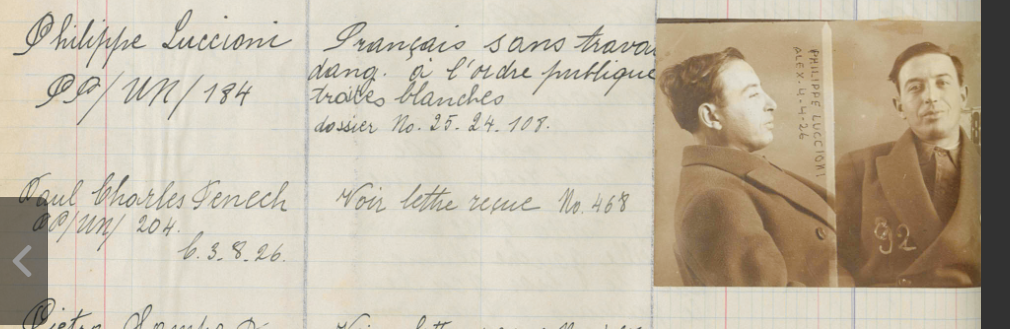 Philippe Luccioni
PP/UN/184
Français sans travai
dang. à l'ordre publique
traites blanches
dossier No. 25-24-108.
PHILIPPE LUCCIONI
ALEX. 4-4-26
92
Paul Charles Fenech
PP/UN/ 204.
b. 3.8.26.
Voir lettre reçue No. 468
Pietro
Voir